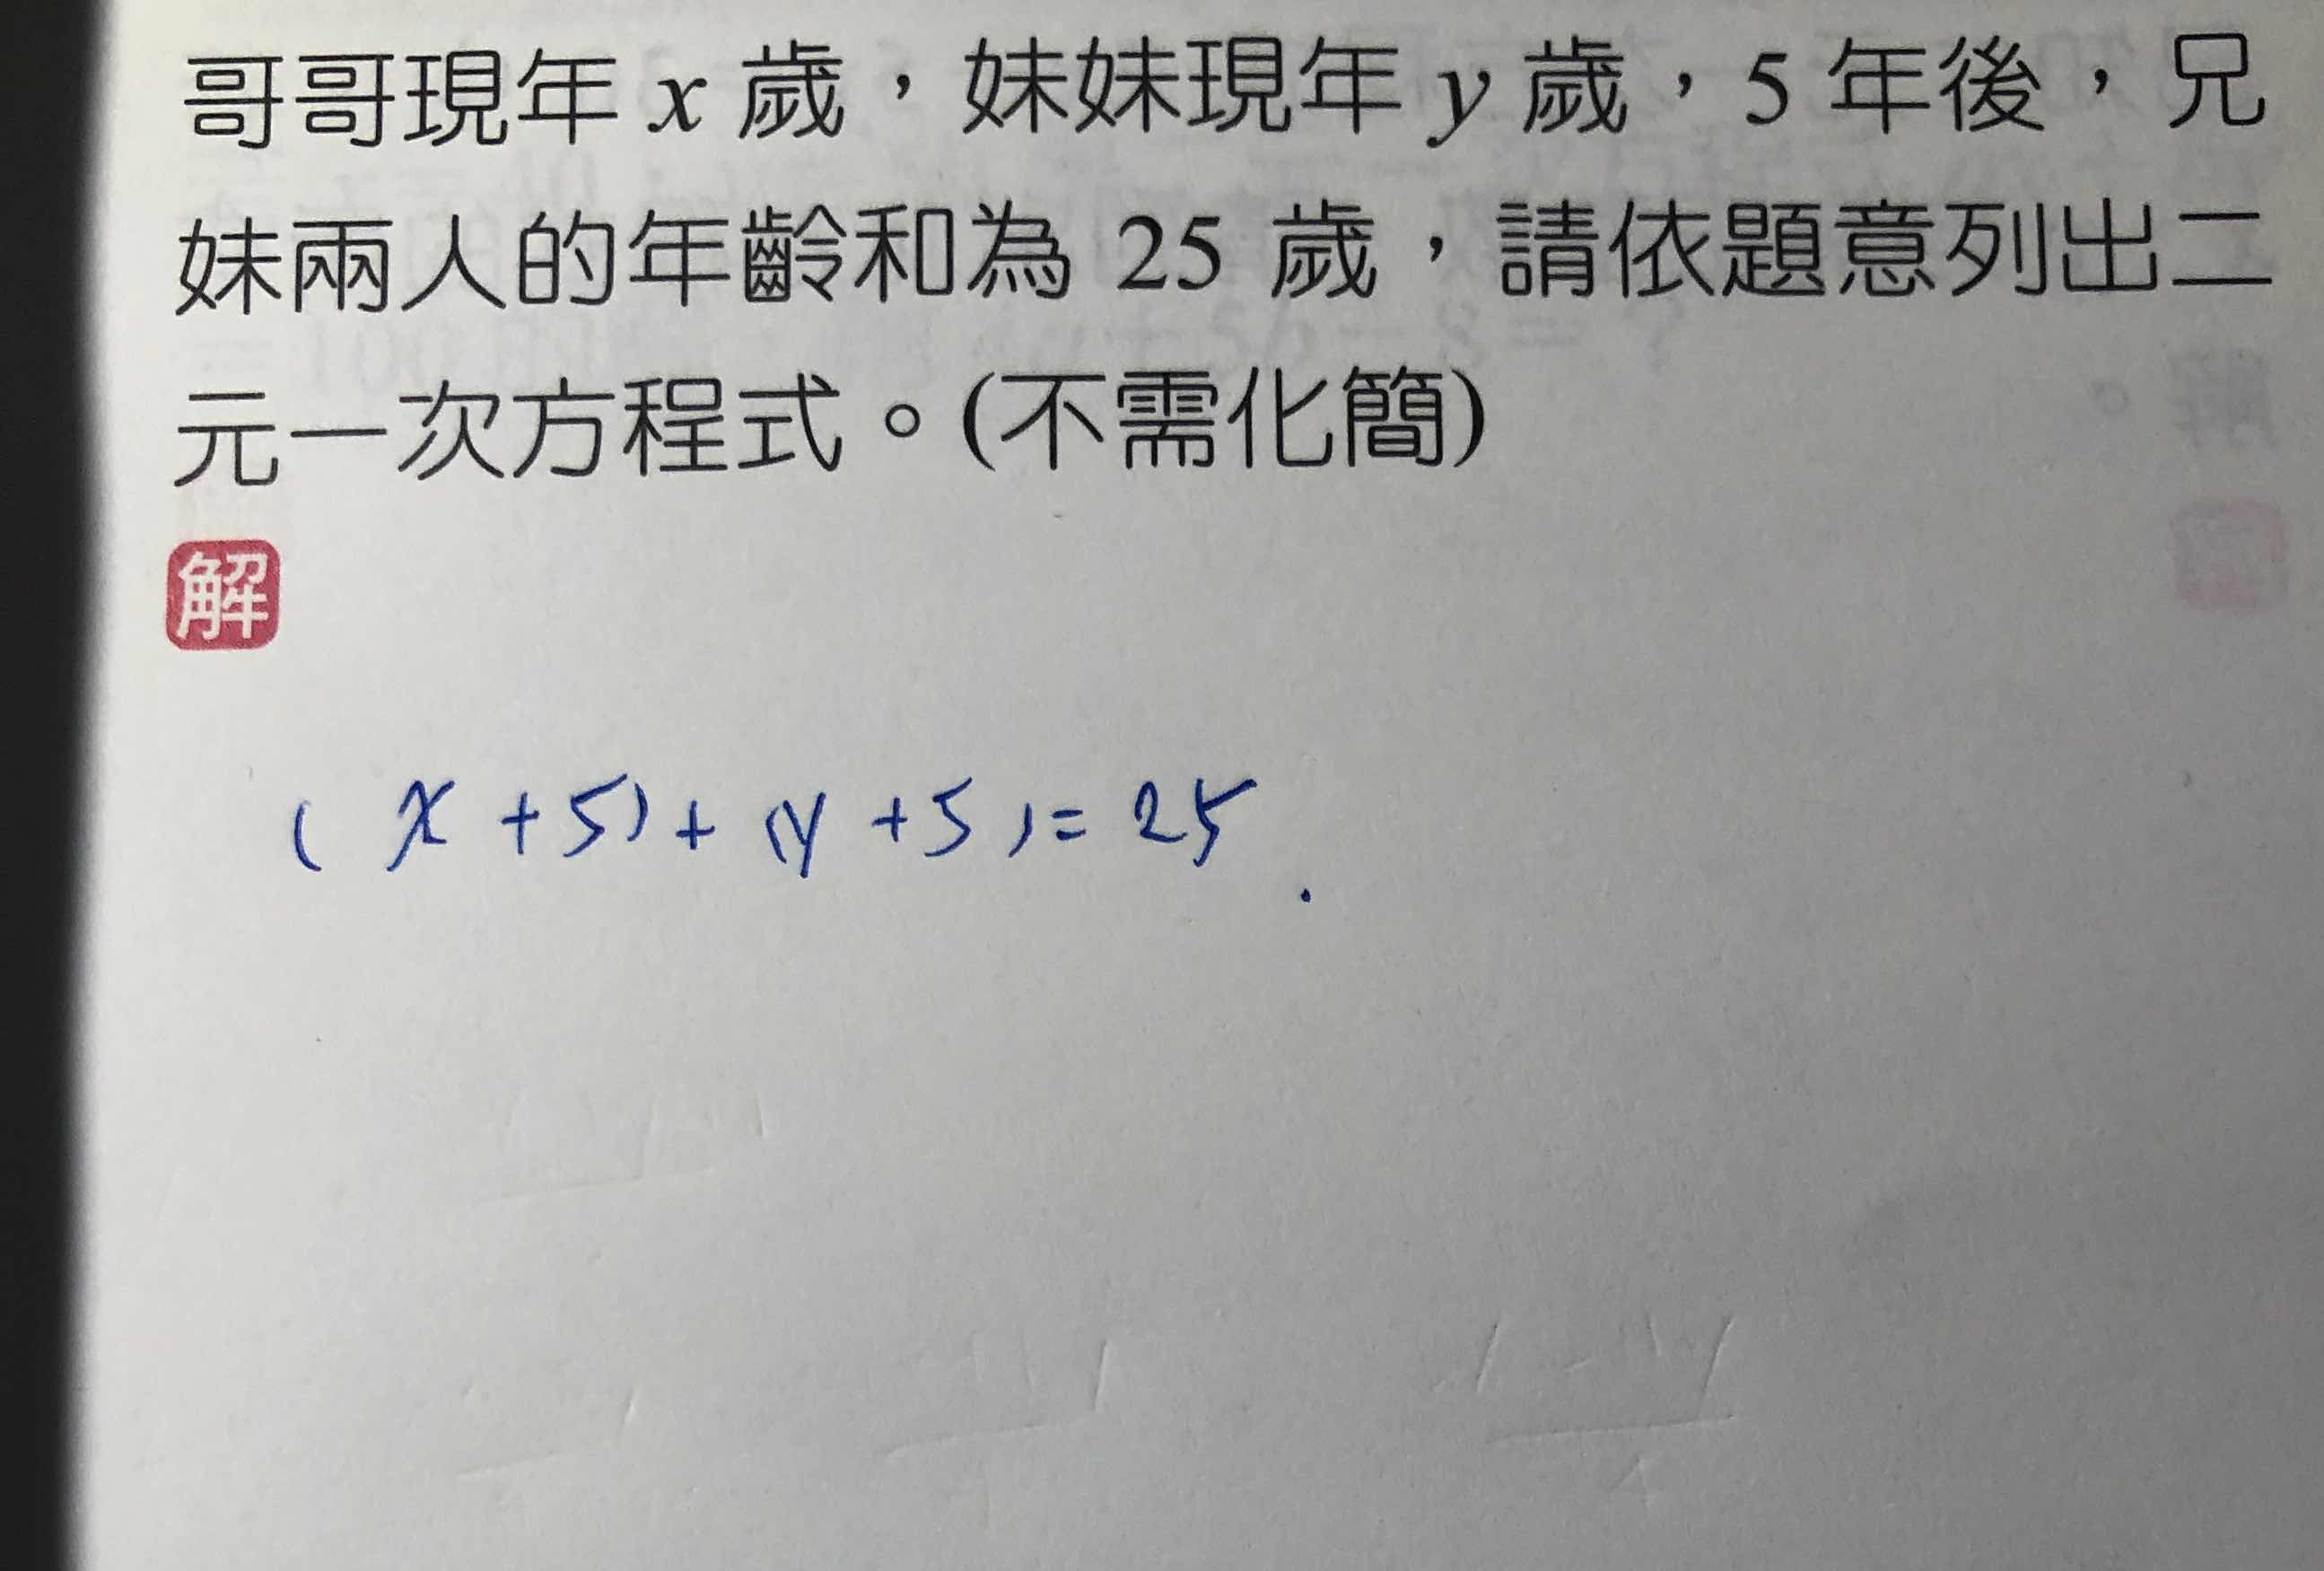 哥哥現年 x 歲，妹妹現年 y 歲，5 年後，兄
妹兩人的年齡和為 25 歲，請依題意列出二
元一次方程式。(不需化簡)
解
( x + 5 ) + ( y + 5 ) = 25 .